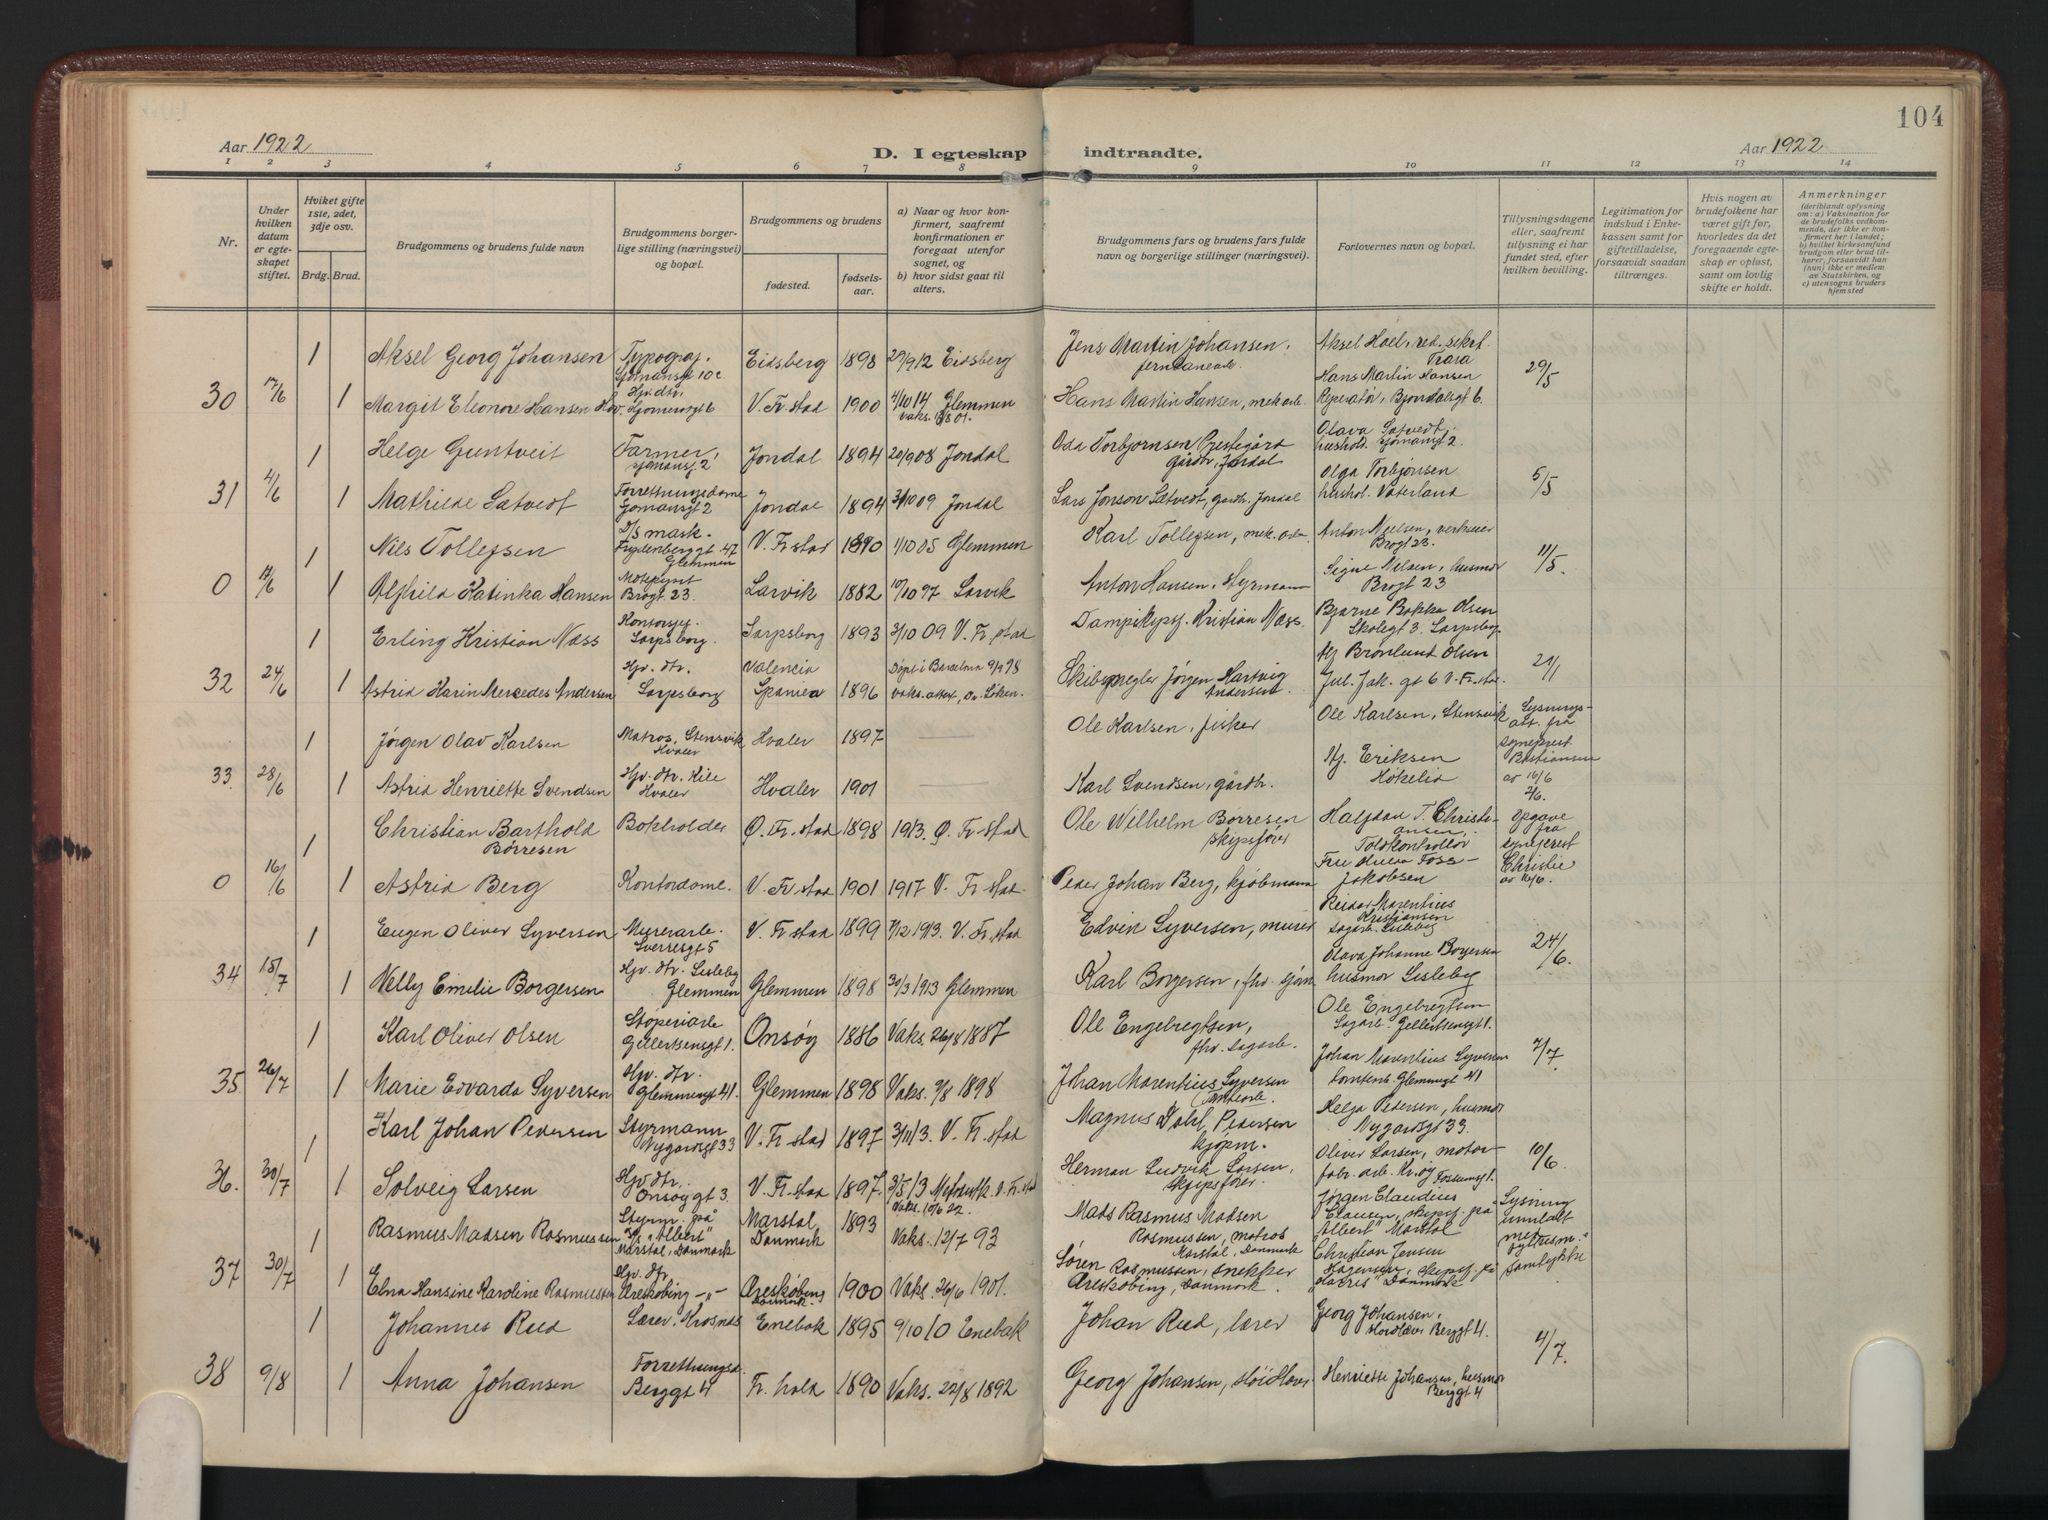 104
Aar 1922
D. I egteskap indtraadte.
Aar 1922
1 2 3 4 5 6 7 8 9 10 11 12 13 14
Nr.
Under hvilken datum er egteskapet stiftet.
Hviket gifte 1ste, 2det, 3dje osv.
Brdg. Brud.
Brudgommens og brudens fulde navn
Brudgommens borgerlige stilling (næringsvei) og bopæl.
Brudgommens og brudens
fødested.
fødselsaar.
a) Naar og hvor konfirmert, saafremt konfirmationen er foregaat utenfor sognet, og
b) hvor sidst gaat til alters.
Brudgommens fars og brudens fars fulde navn og borgerlige stillinger (næringsvei).
Forlovernes navn og bopæl.
Tillysningsdagene eller, saafremt tillysning ei har fundet sted, efter hvilken bevilling.
Legitimation for indskud i Enkekassen samt for giftetilladelse, forsaavidt saadan tiltrænges.
Hvis nogen av brudefolkene har været gift før, hvorledes da det foregaaende egteskap er opløst, samt om lovlig skifte er holdt.
Anmerkninger
(deriblandt oplysning om: a) Vaksination for de brudefolks vedkommende, der ikke er konfirmert her i landet; b) hvilket kirkesamfund brudgom eller brud tilhører, forsaavidt han (hun) ikke er medlem av Statskirken, og c) utensogns bruders hjemsted
1 Aksel Georg Johansen Typograf. Sjømansgt 10 c Eidsberg 1898 29/9 12 Eidsberg Jens Martin Johansen, Aksel Hoel, red. sekr.
30 17/6 1 Margit Eleonore Hansen Hjv. dtr. V. Fr.stad 1900 4/10 14 Glemmen Hans Martin Hansen, mek. arb. Hans Martin Hansen Reparatør, 29/5
1 Helge Guntveit Farmer, Sjømansgt 2 Jondal 1894 20/9 08 Jondal Oda Torbjørnsen Prestegård gårdbr. Jondal Olava Sætvedt, hushold. Sjømansgt 2.
31 4/6 1 Mathilde Sætvedt Forretningsdame Sjømansgt 2 Jondal 1894 3/10 09 Jondal Lars Jonson Sætvedt, gårdbr. Jondal Olga Torbjønsen hushol. Vaterland 5/5
1 Nils Tollefsen D/S mask. Frydenberggt 47 Glemmen V. Fr.stad 1890 1/10 05 Glemmen Karl Tollefsen, mek. arb. Anton Nielsen, Brogt 23.
0 11/6 1 Alfhild Katinka Hansen Brogt 23. Larvik 1882 10/10 97 Larvik Anton Hansen, styrmann Signe Nielsen, husmor Brogt 23 11/5.
1 Erling Kristian Næss Kontorsjef. Sarpsborg. Sarpsborg 1893 3/10 09 V. Fr.stad Dampskipsf. Kristian Næss. Bjarne Bakke Olsen Skolegt 3. Sarpsborg
32 24/6 1 Astrid Karin Mercedes Andersen Hjv. dtr. Sarpsborg Valencia Spania 1896 Døpt i Barcelona 9/4 98 Vaks. attest, Skibsmegler Jørgen Hartvig Andersen. Hj Brønlund Olsen Jul. Jak. gt 6 V. Fr.stad 21/1
1 Jørgen Olav Karlsen Matros, Stensvik Hvaler Hvaler 1897 — Ole Karlsen, fisker Ole Karlsen, Stensvik Lysnings-att. fra
33. 28/6 1 Astrid Henriette Svendsen Hjv. dtr. Kile Hvaler Hvaler 1901 — Karl Svendsen, gårdbr. Hj. Eriksen Høkelia sogneprest Bastiansen av 16/6
1 Christian Barthold Børresen Bokholder Ø. Fr.stad 1898 1913. Ø. Fr.stad Ole Wilhelm Børresen skipsfører Halfdan T. Christiansen, Toldkontrollør 2/6. Opgave fra
0 16/6 1 Astrid Berg Kontordame. V. Fr.stad 1901 1917 V. Fr.stad Peder Johan Berg, kjøbmann Fru Foss-Jakobsen sogneprest Christie
1 Eugen Oliver Syversen Murerarb. Sverresgt 5 V. Fr.stad 1899 7/12 1913. V. Fr.stad Edvin Syversen, murer Reidar Marentius Kristiansen sagarb. Lisleby
34 15/7 1 Nelly Emilie Borgersen Hjv. dtr. Lisleby Glemmen Glemmen 1898 30/3 1913 Glemmen Karl Borgersen, fhv. sjøm Olava Johanne Borgersen husmor Lisleby 24/6.
1 Karl Oliver Olsen Støperiarb Gellertsensgt 1. Onsøy 1886 Vaks. 26/8 1887 Ole Engebregtsen, fhv. sagarb. Ole Engebregtsen Sagarb. Gellertsensgt 1.
35. 26/7 1 Marie Edvarda Syversen Hjv. dtr. Glemmengt 41 Glemmen 1898 Vaks. 9/8 1898 Johan Marentius Syversen tomtearb. Johan Marentius Syversen Glemmengt 41 7/7.
1 Karl Johan Pedersen Styrmann Nygårdsgt 33 V. Fr.stad 1897 3/11 13. V. Fr.stad Magnus Dahl Pedersen kjøpm. Helga Pedersen, husmor Nygårdsgt 33.
36. 30/7 1 Solveig Larsen Hjv dtr. Onsøygt 3 V. Fr.stad 1897. 3/5 13 Metodistk. V. Fr.stad Vaks. 10/6 22 Herman Ludvik Larsen, skipsfører. Oliver Larsen, motorfabr. arb. 10/6.
1 Rasmus Madsen Rasmussen Styrm. på "Albert" Marstal, Danmark Marstal, Danmark 1893 Vaks. 12/7 93 Mads Rasmus Madsen Rasmussen, matros Marstal, Danmark Jørgen Claudius Clausen, skipsf. på "Albert" Marstal Lysning undlatt
37 30/7 1 Elna Hansine Karoline Rasmussen Hjv. dtr Æreskøbing -"- Æreskøbing Danmark. 1900 Vaks. 26/6 1901. Søren Rasmussen, snekker Æreskøbing, Danmark. Christian Jensen skipsf. på Danmark med fylkesm.s samtykke
1 Johannes Rud Lærer. Krosnes Enebak 1895 9/10 10 Enebak Johan Rud, lærer Georg Johansen, Berggt 4.
38 9/8 1 Anna Johansen Forretningsd. Berggt 4 Fr.hald 1890 Vaks. 22/8 1892 Georg Johansen, Henriette Johansen, husmor Berggt 4 4/7.